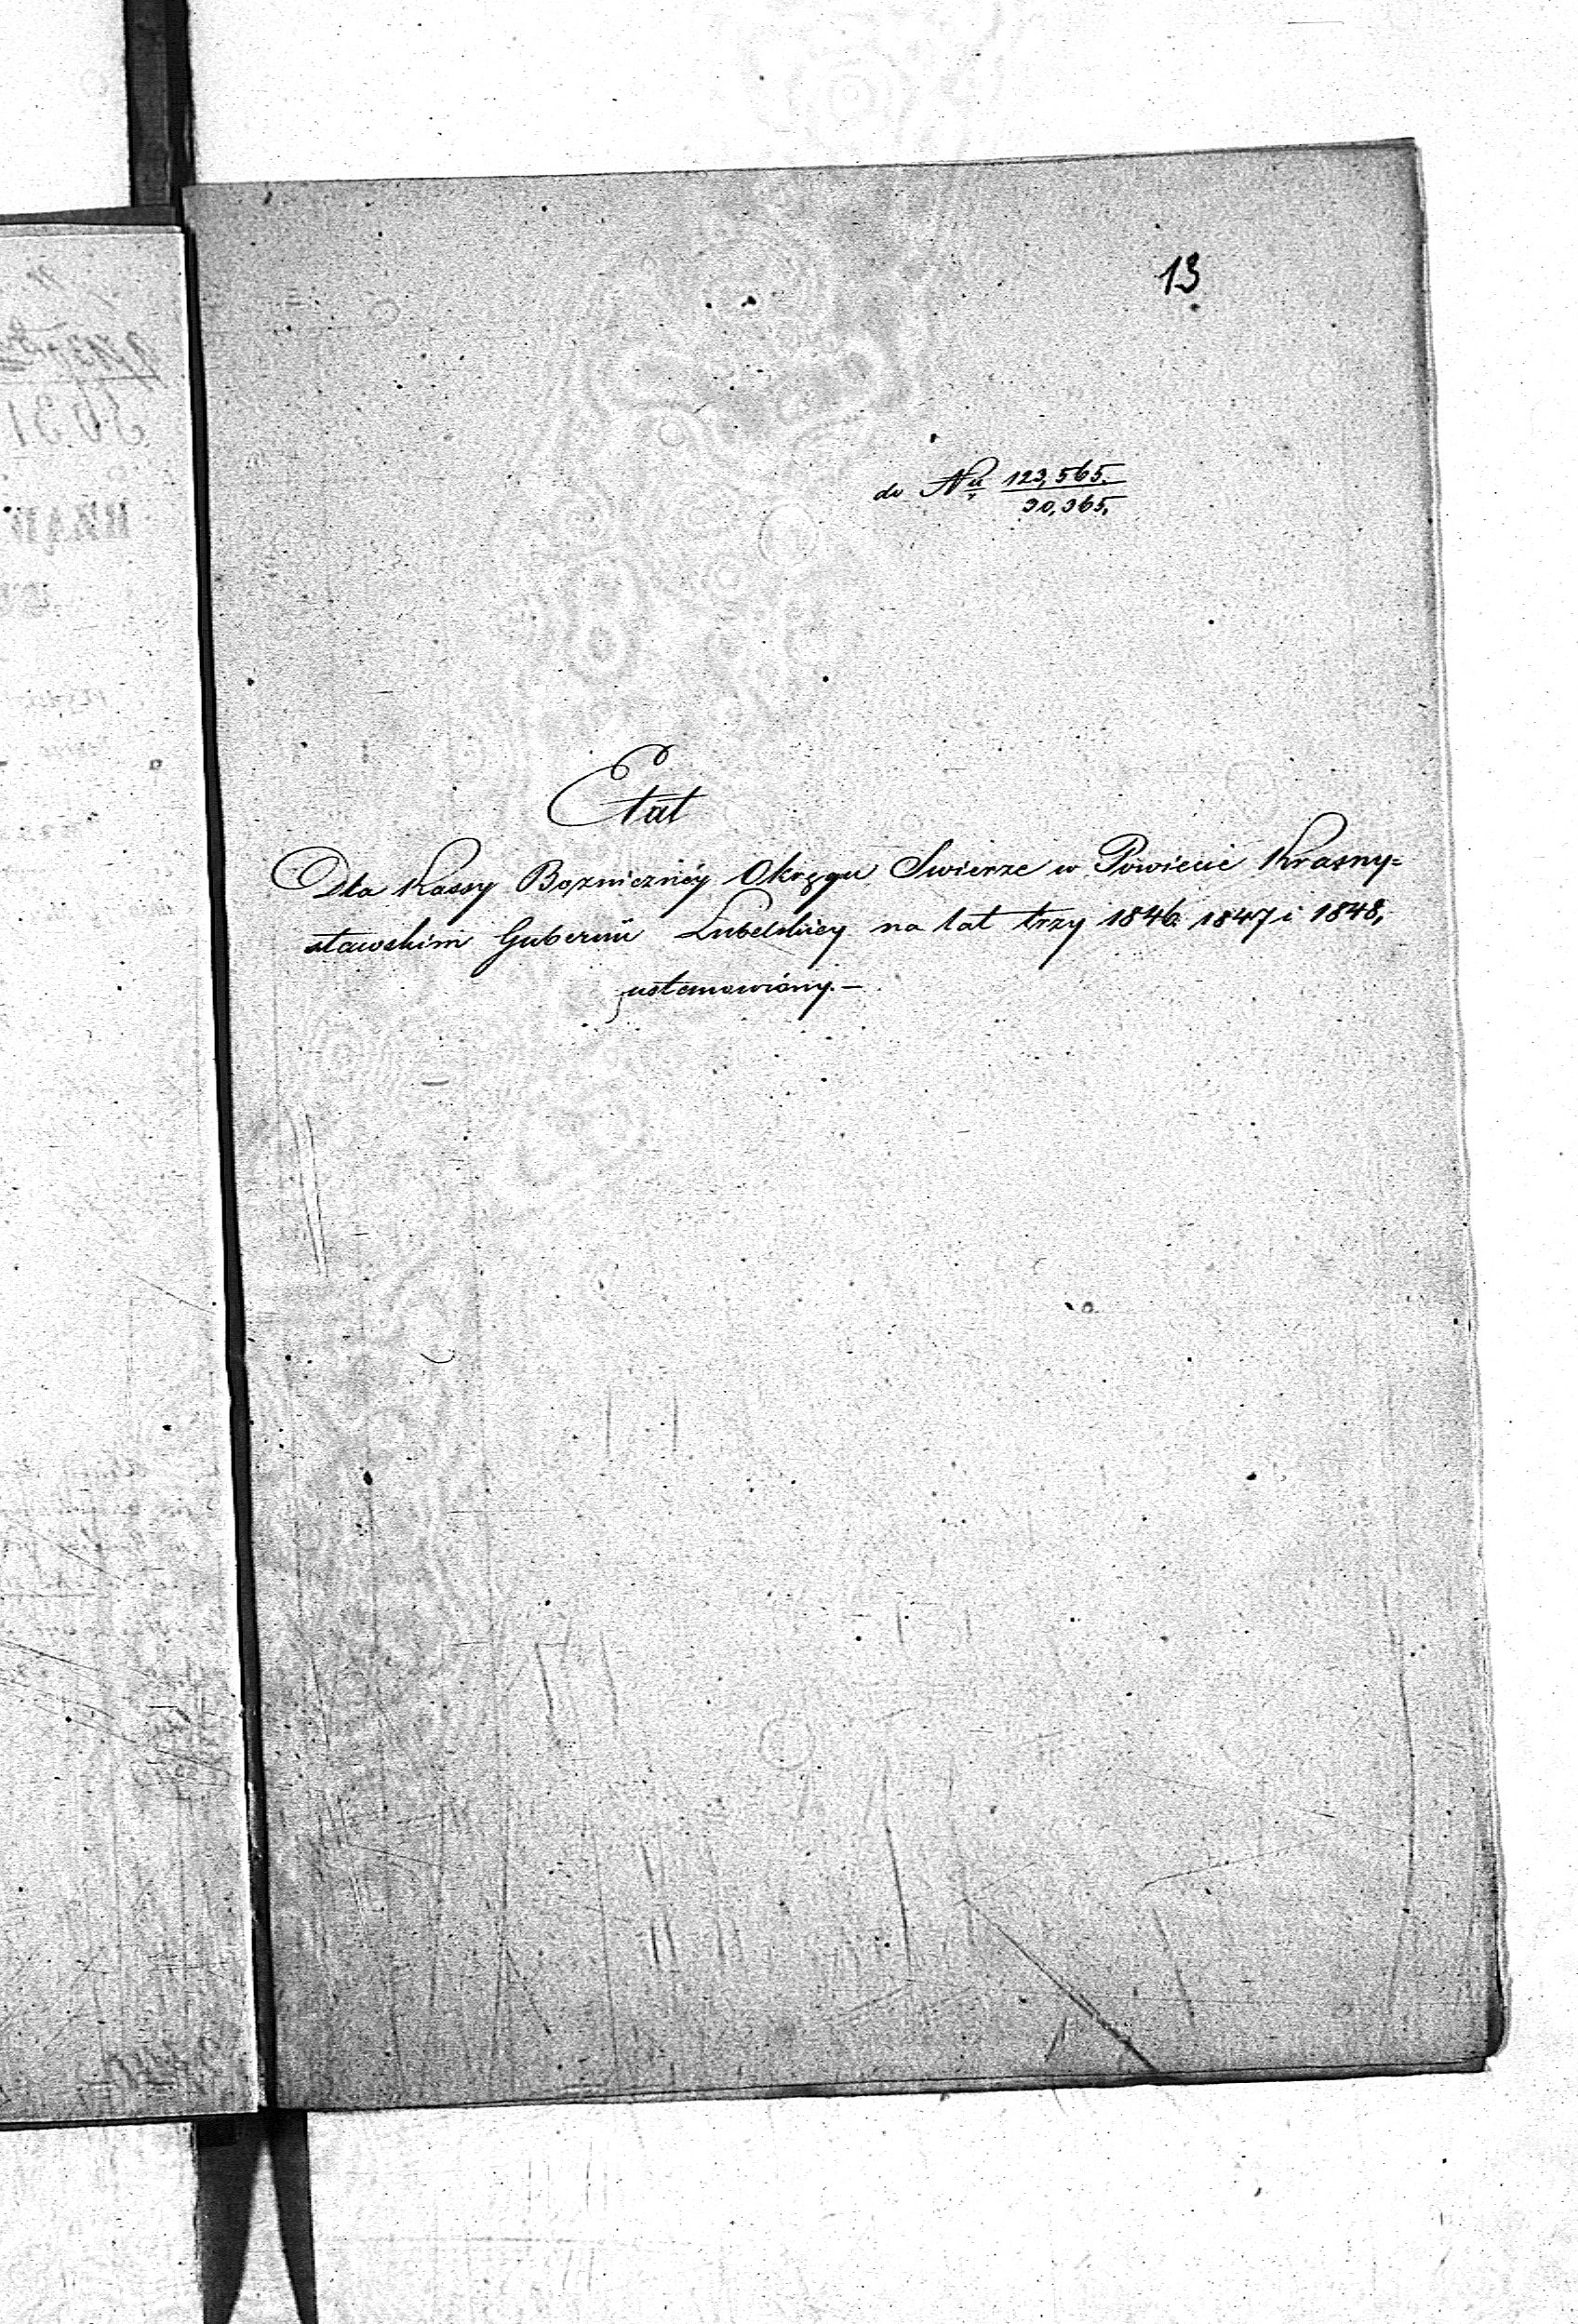 13
do Nru 123,565.
30,365.
Etat
Dla Kassy Boźniczney Okręgu Swierze w Powiecie Krasny=
stawskim Gubernii Lubelskiey na lat trzy 1846. 1847 i 1848,
ustanowiony.—